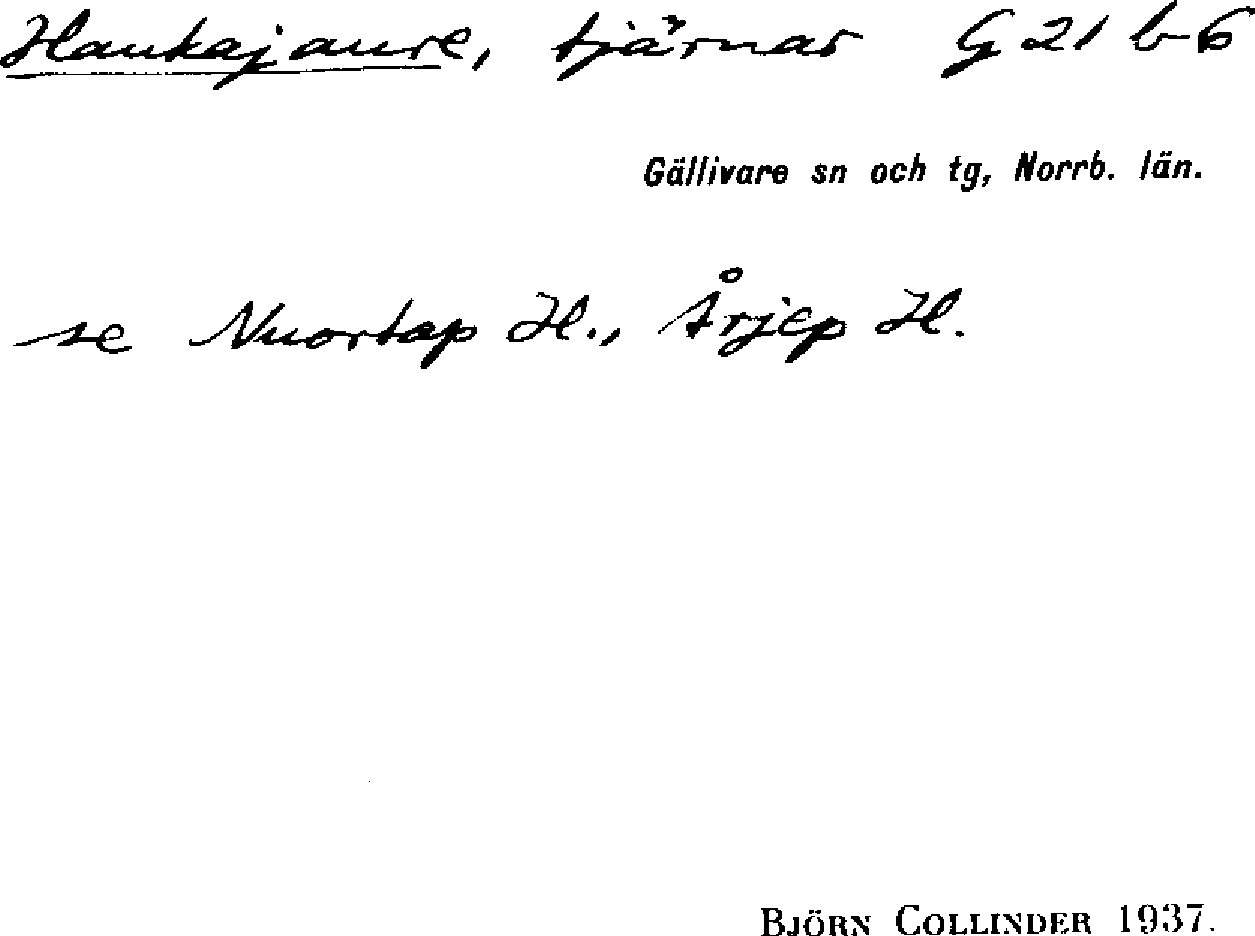 Haukajaure, tjärnar G 21 b 6
Gällivare sn och tg, Norrb. län.
se Nuortap H., Årjep H.
BJÖRN COLLINDER 1937.